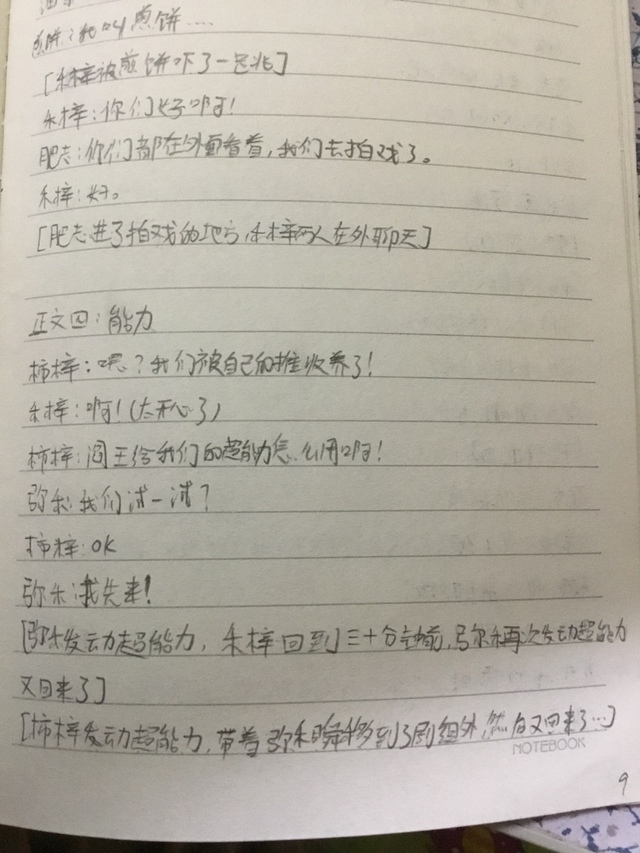 煎饼：我叫煎饼....
[禾梓被煎饼吓了一包兆]
禾梓：你们好啊！
肥志：你们都在外面看着，我们去拍戏了。
禾梓：好。
[肥志进了拍戏的地方，禾梓两人在外聊天]
正文四：能力
柿梓：嗯？我们被自己的推收养了！
禾梓：啊！(太开心了)
柿梓：阎王给我们的超能力怎么用啊！
弥禾：我们试一试？
柿梓：OK
弥禾：我先来！
[弥禾发动超能力，禾梓回到三十分钟前，弥禾再次发动超能力
又回来了]
[柿梓发动超能力，带着弥禾瞬移到了剧组外，然后又回来了…]
NOTEBOOK
9